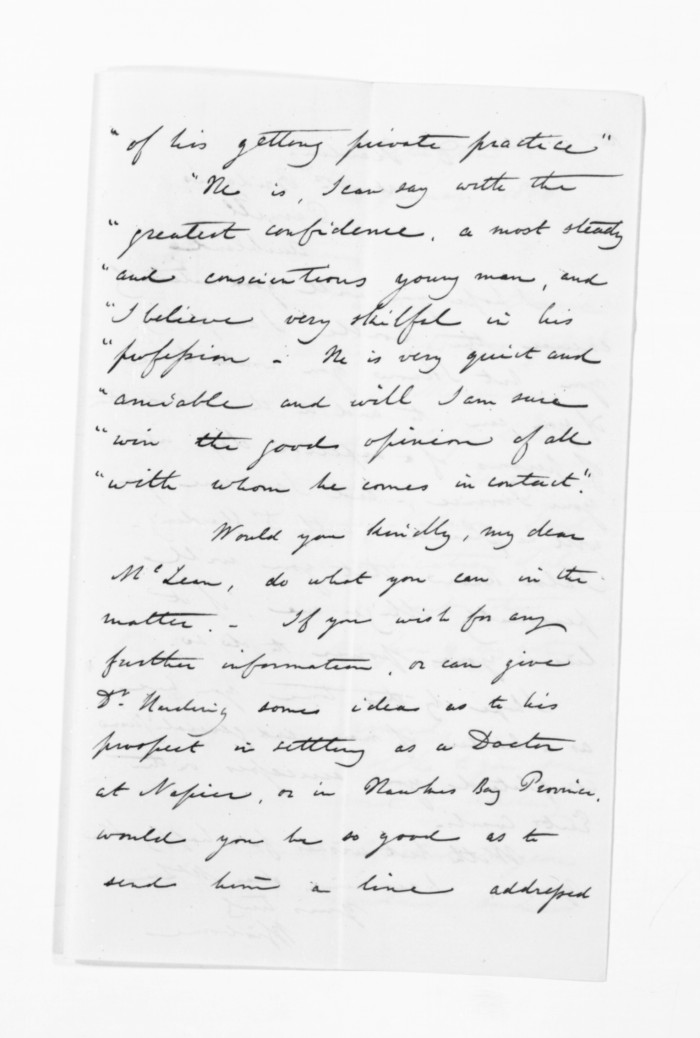 "of his getting private practice"
"He is, I can say with the
"greatest confidence, a most steady
"and conscientious young man, and
"I believe very skilful in his
"profession - He is very quiet and
"amiable and will I am sure
"win the good opinion of all
"with whom he comes in contact".
Would you kindly, my dear
McLean, do what you can in the
matter. - If you wish for any
further information, or can give
Dr. Harding some idea as to his
prospect in settling as a Doctor
at Napier, or in Hawkes Bay Province,
would you be so good as to
send him a line addressed